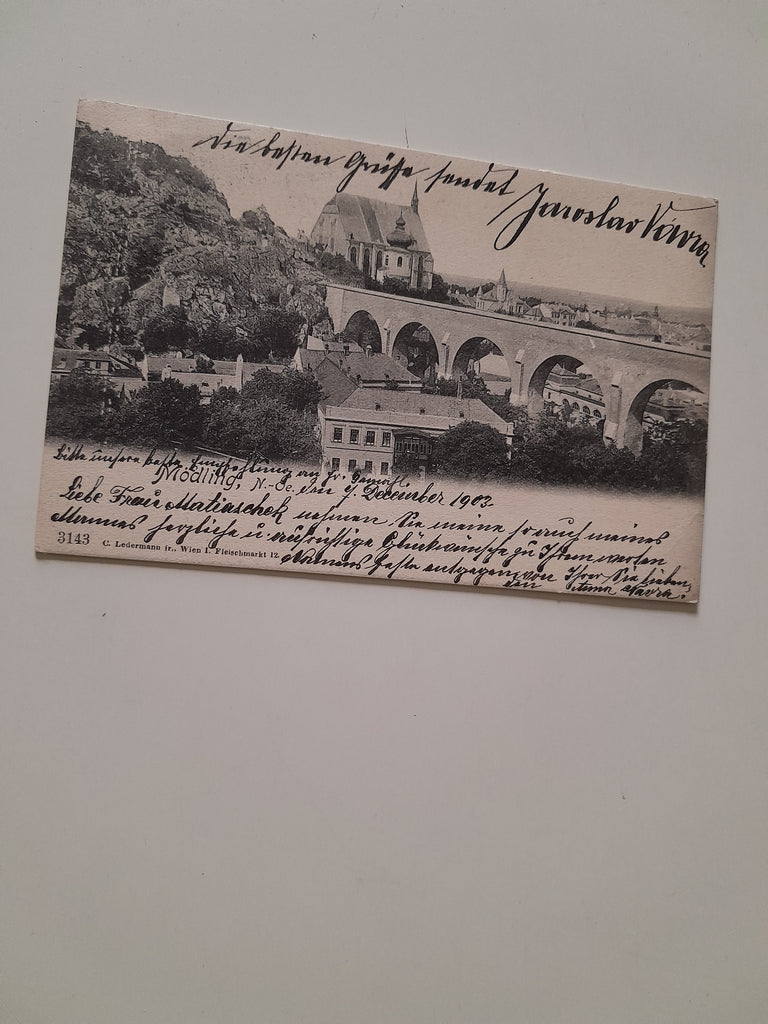 Die besten Grüße sendet Jaroslav Vávra
Bitte unsere beste Empfehlung an Hr. Gemahl.
Mödling, N.-Oe. den 7. December 1903.
Liebe Frau Matiaschek nehmen Sie meine so auch meines
Mannes herzliche u. aufrichtige Glückwünsche zu Ihrem werten
Namensfeste entgegen von Ihrer Sie lieben
den Anna Vavra.
3143 C. Ledermann jr., Wien I. Fleischmarkt 12.